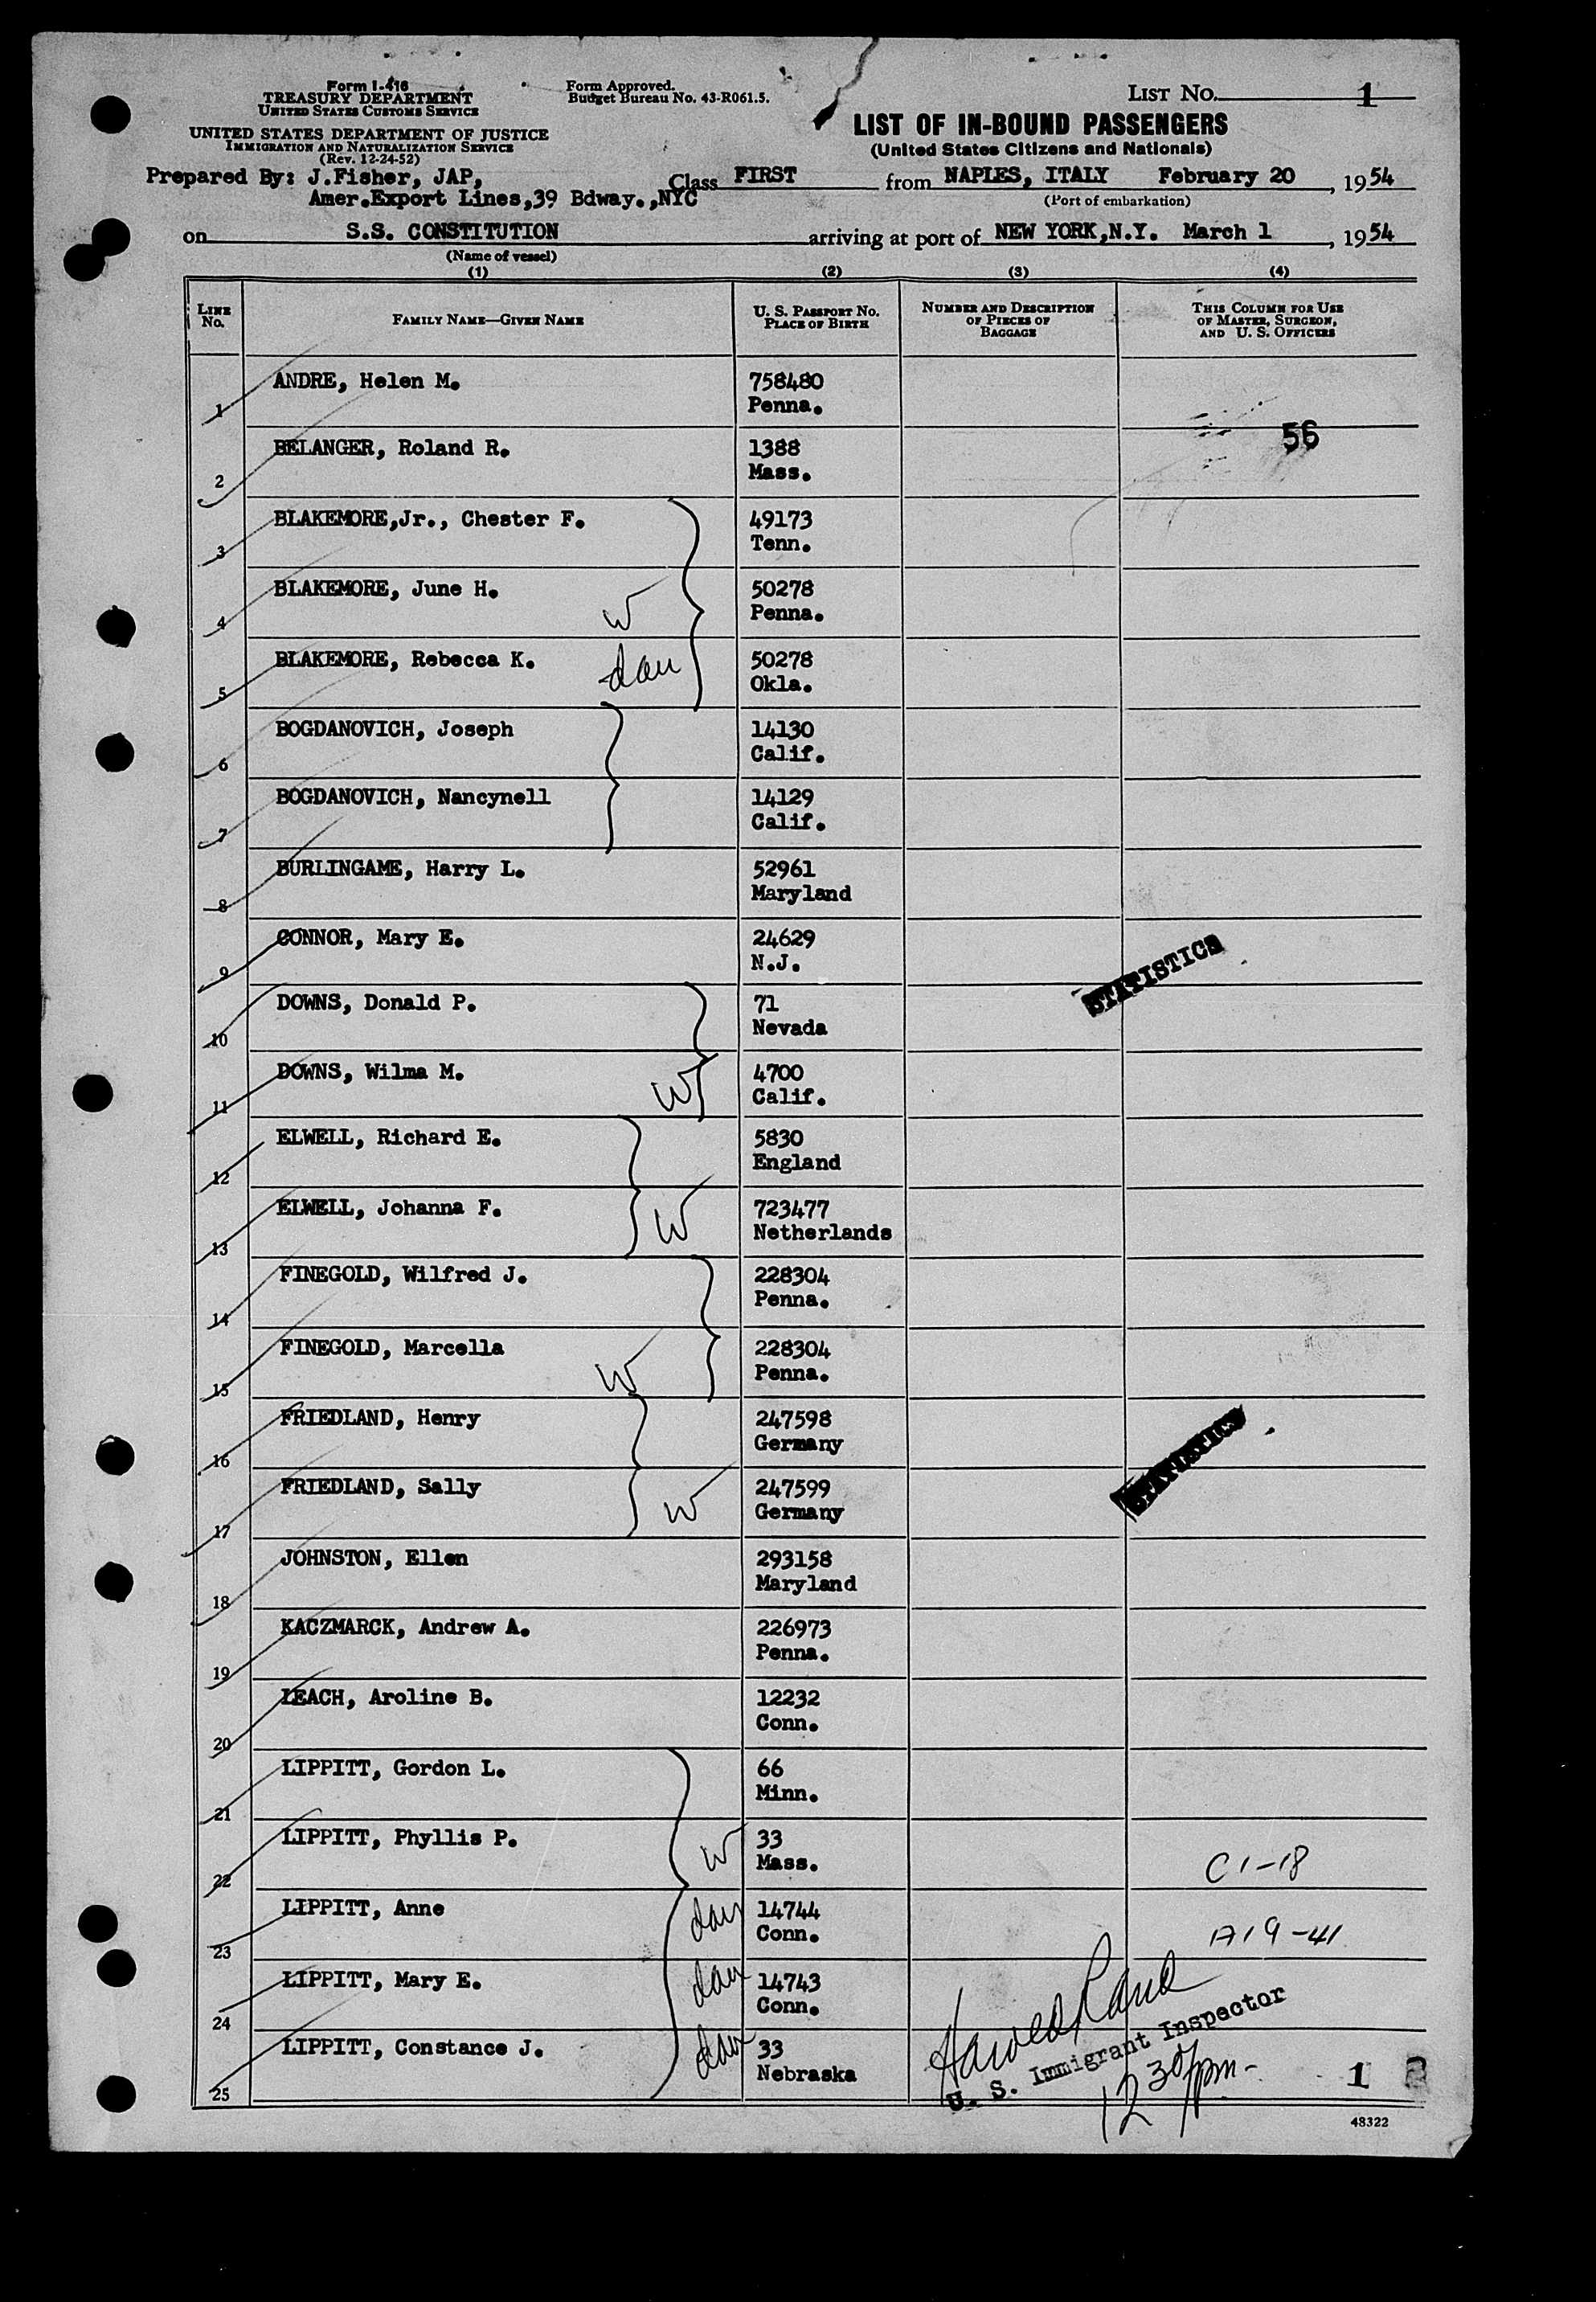 Form I-416
TREASURY DEPARTMENT
UNITED STATES CUSTOMS SERVICE
UNITED STATES DEPARTMENT OF JUSTICE
IMMIGRATION AND NATURALIZATION SERVICE
(Rev. 12-24-52)
Form Approved.
Budget Bureau No. 43-R061.5.
LIST No. 1
LIST OF IN-BOUND PASSENGERS
(United States Citizens and Nationals)
Prepared By: J.Fisher, JAP,
Amer.Export Lines,39 Bdway.,NYC
Class FIRST from NAPLES, ITALY February 20, 1954
(Port of embarkation)
on S.S. CONSTITUTION arriving at port of NEW YORK,N.Y. March 1, 1954
(Name of vessel)
(1) (2) (3) (4)
LINE No. FAMILY NAME—GIVEN NAME U. S. PASSPORT No. PLACE OF BIRTH NUMBER AND DESCRIPTION OF PIECES OF BAGGAGE THIS COLUMN FOR USE OF MASTER, SURGEON, AND U. S. OFFICERS
1 ANDRE, Helen M. 758480
Penna.
56
2 BELANGER, Roland R. 1388
Mass.
3 BLAKEMORE,Jr., Chester F. 49173
Tenn.
4 BLAKEMORE, June H. W 50278
Penna.
5 BLAKEMORE, Rebecca K. dau 50278
Okla.
6 BOGDANOVICH, Joseph 14130
Calif.
7 BOGDANOVICH, Nancynell 14129
Calif.
8 BURLINGAME, Harry L. 52961
Maryland
9 CONNOR, Mary E. 24629
N.J.
STATISTICS
10 DOWNS, Donald P. 71
Nevada
11 DOWNS, Wilma M. W 4700
Calif.
12 ELWELL, Richard E. 5830
England
13 ELWELL, Johanna F. W 723477
Netherlands
14 FINEGOLD, Wilfred J. 228304
Penna.
15 FINEGOLD, Marcella W 228304
Penna.
16 FRIEDLAND, Henry 247598
Germany
STATISTICS
17 FRIEDLAND, Sally W 247599
Germany
18 JOHNSTON, Ellen 293158
Maryland
19 KACZMARCK, Andrew A. 226973
Penna.
20 LEACH, Aroline B. 12232
Conn.
21 LIPPITT, Gordon L. 66
Minn.
22 LIPPITT, Phyllis P. W 33
Mass.
C 1-18
23 LIPPITT, Anne dau 14744
Conn.
A 19-41
24 LIPPITT, Mary E. dau 14743
Conn.
25 LIPPITT, Constance J. dau 33
Nebraska
U. S. Immigrant Inspector
12 30 pm-
1
48322